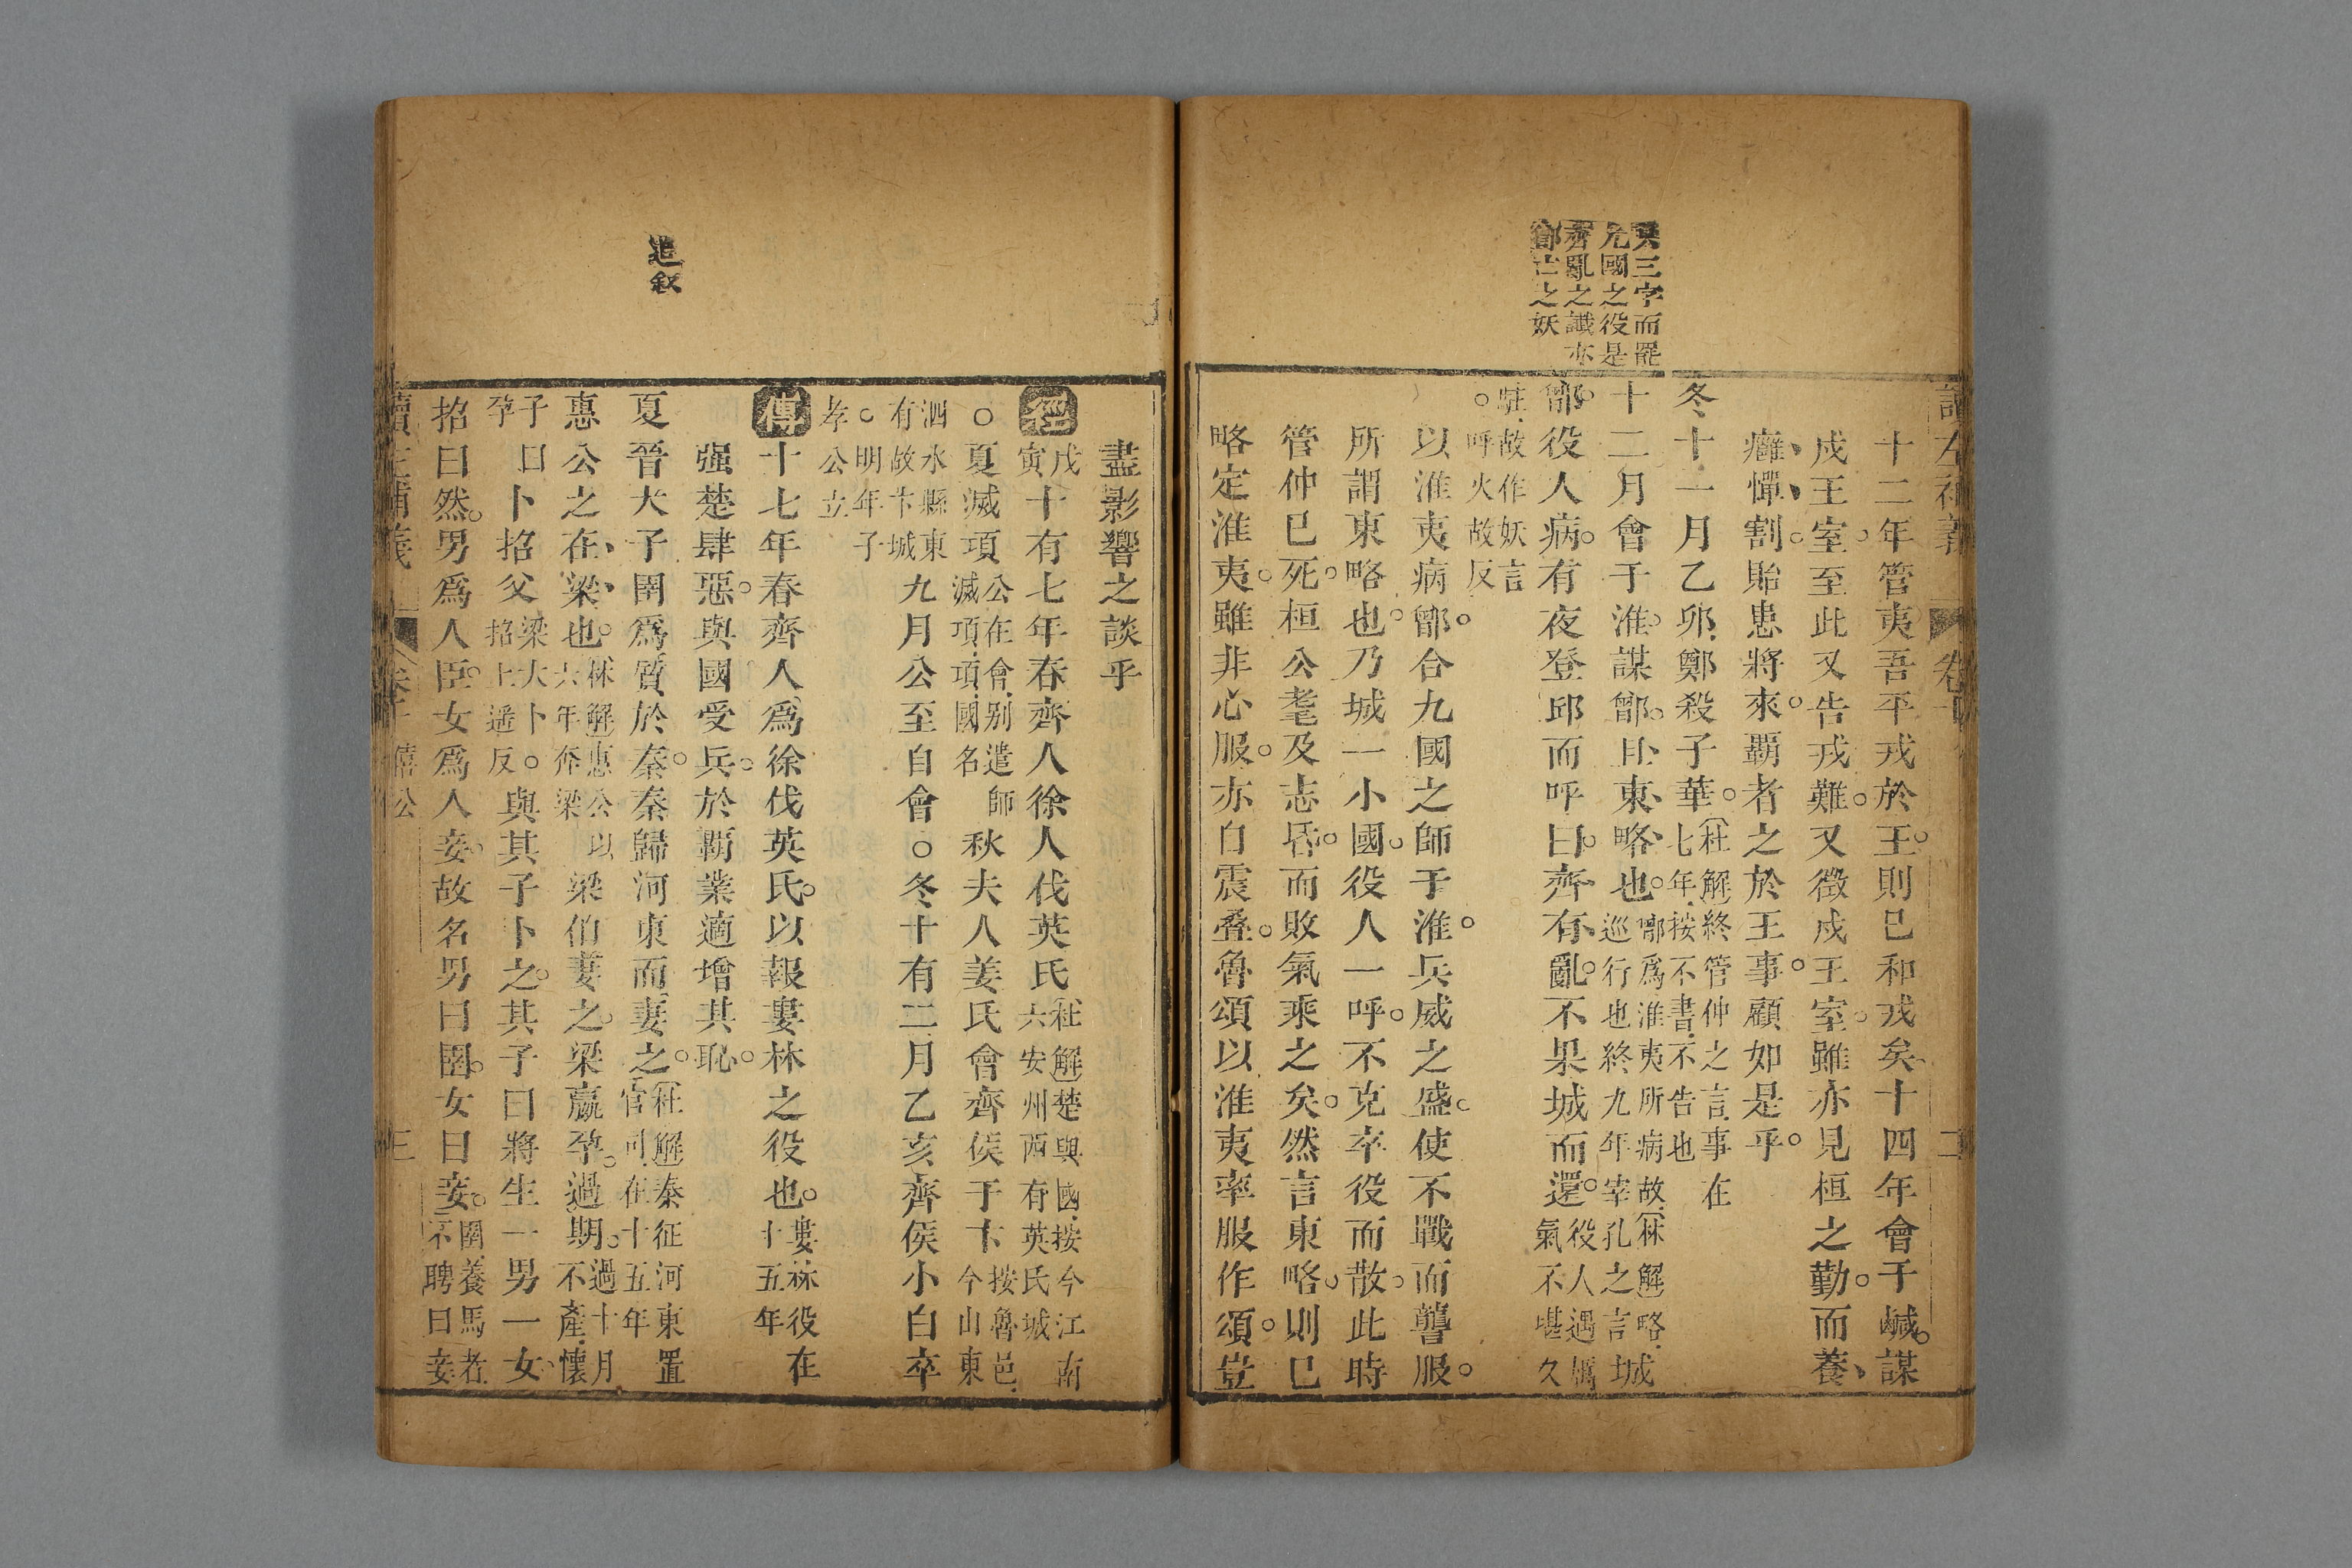 讀左補義
卷十
二
十二年管夷吾平戎於王則已和戎矣十四年會于鹹謀
戍王室至此又告戎難又徵戍王室雖亦見桓之勤而養
癰憚割貽患將來霸者之於王事顧如是乎
冬十一月乙卯鄭殺子華杜解終管仲之言事在
七年按不書不告也
十二月會于淮謀鄫且東略也鄫爲淮夷所病故林解略
巡行也終九年宰孔之言城
鄫役人病有夜登邱而呼曰齊有亂不果城而還役人遇厲
氣不堪久
駐故作妖言
○呼火故反
以淮夷病鄫合九國之師于淮兵威之盛使不戰而讋服
所謂東略也乃城一小國役人一呼不克卒役而散此時
管仲已死桓公耄及志昏而敗氣乘之矣然言東略則已
略定淮夷雖非心服亦自震叠魯頌以淮夷率服作頌豈
只三字而罷
九國之役是
齊亂之讖亦
鄫亡之妖
盡影響之談乎
經戊
寅十有七年春齊人徐人伐英氏杜解楚與國按今江南
六安州西有英氏城
○夏滅項公在會別遣師
滅項項國名秋夫人姜氏會齊侯于卞按魯邑
今山東
泗水縣東
有故卞城九月公至自會○冬十有二月乙亥齊侯小白卒
○明年子
孝公立
傳十七年春齊人爲徐伐英氏以報婁林之役也婁林役在
十五年
強楚肆惡與國受兵於霸業適增其恥
夏晉大子圉爲質於秦秦歸河東而妻之杜解秦征河東置
官司在十五年
惠公之在梁也林解惠公以
六年奔梁梁伯妻之梁嬴孕過期過十月
不產懷
子曰
孕卜招父梁大卜○
招上遥反與其子卜之其子曰將生一男一女
招曰然男爲人臣女爲人妾故名男曰圉女曰妾圉養馬者
不聘曰妾
追叙
讀左補義
卷十 僖公
三